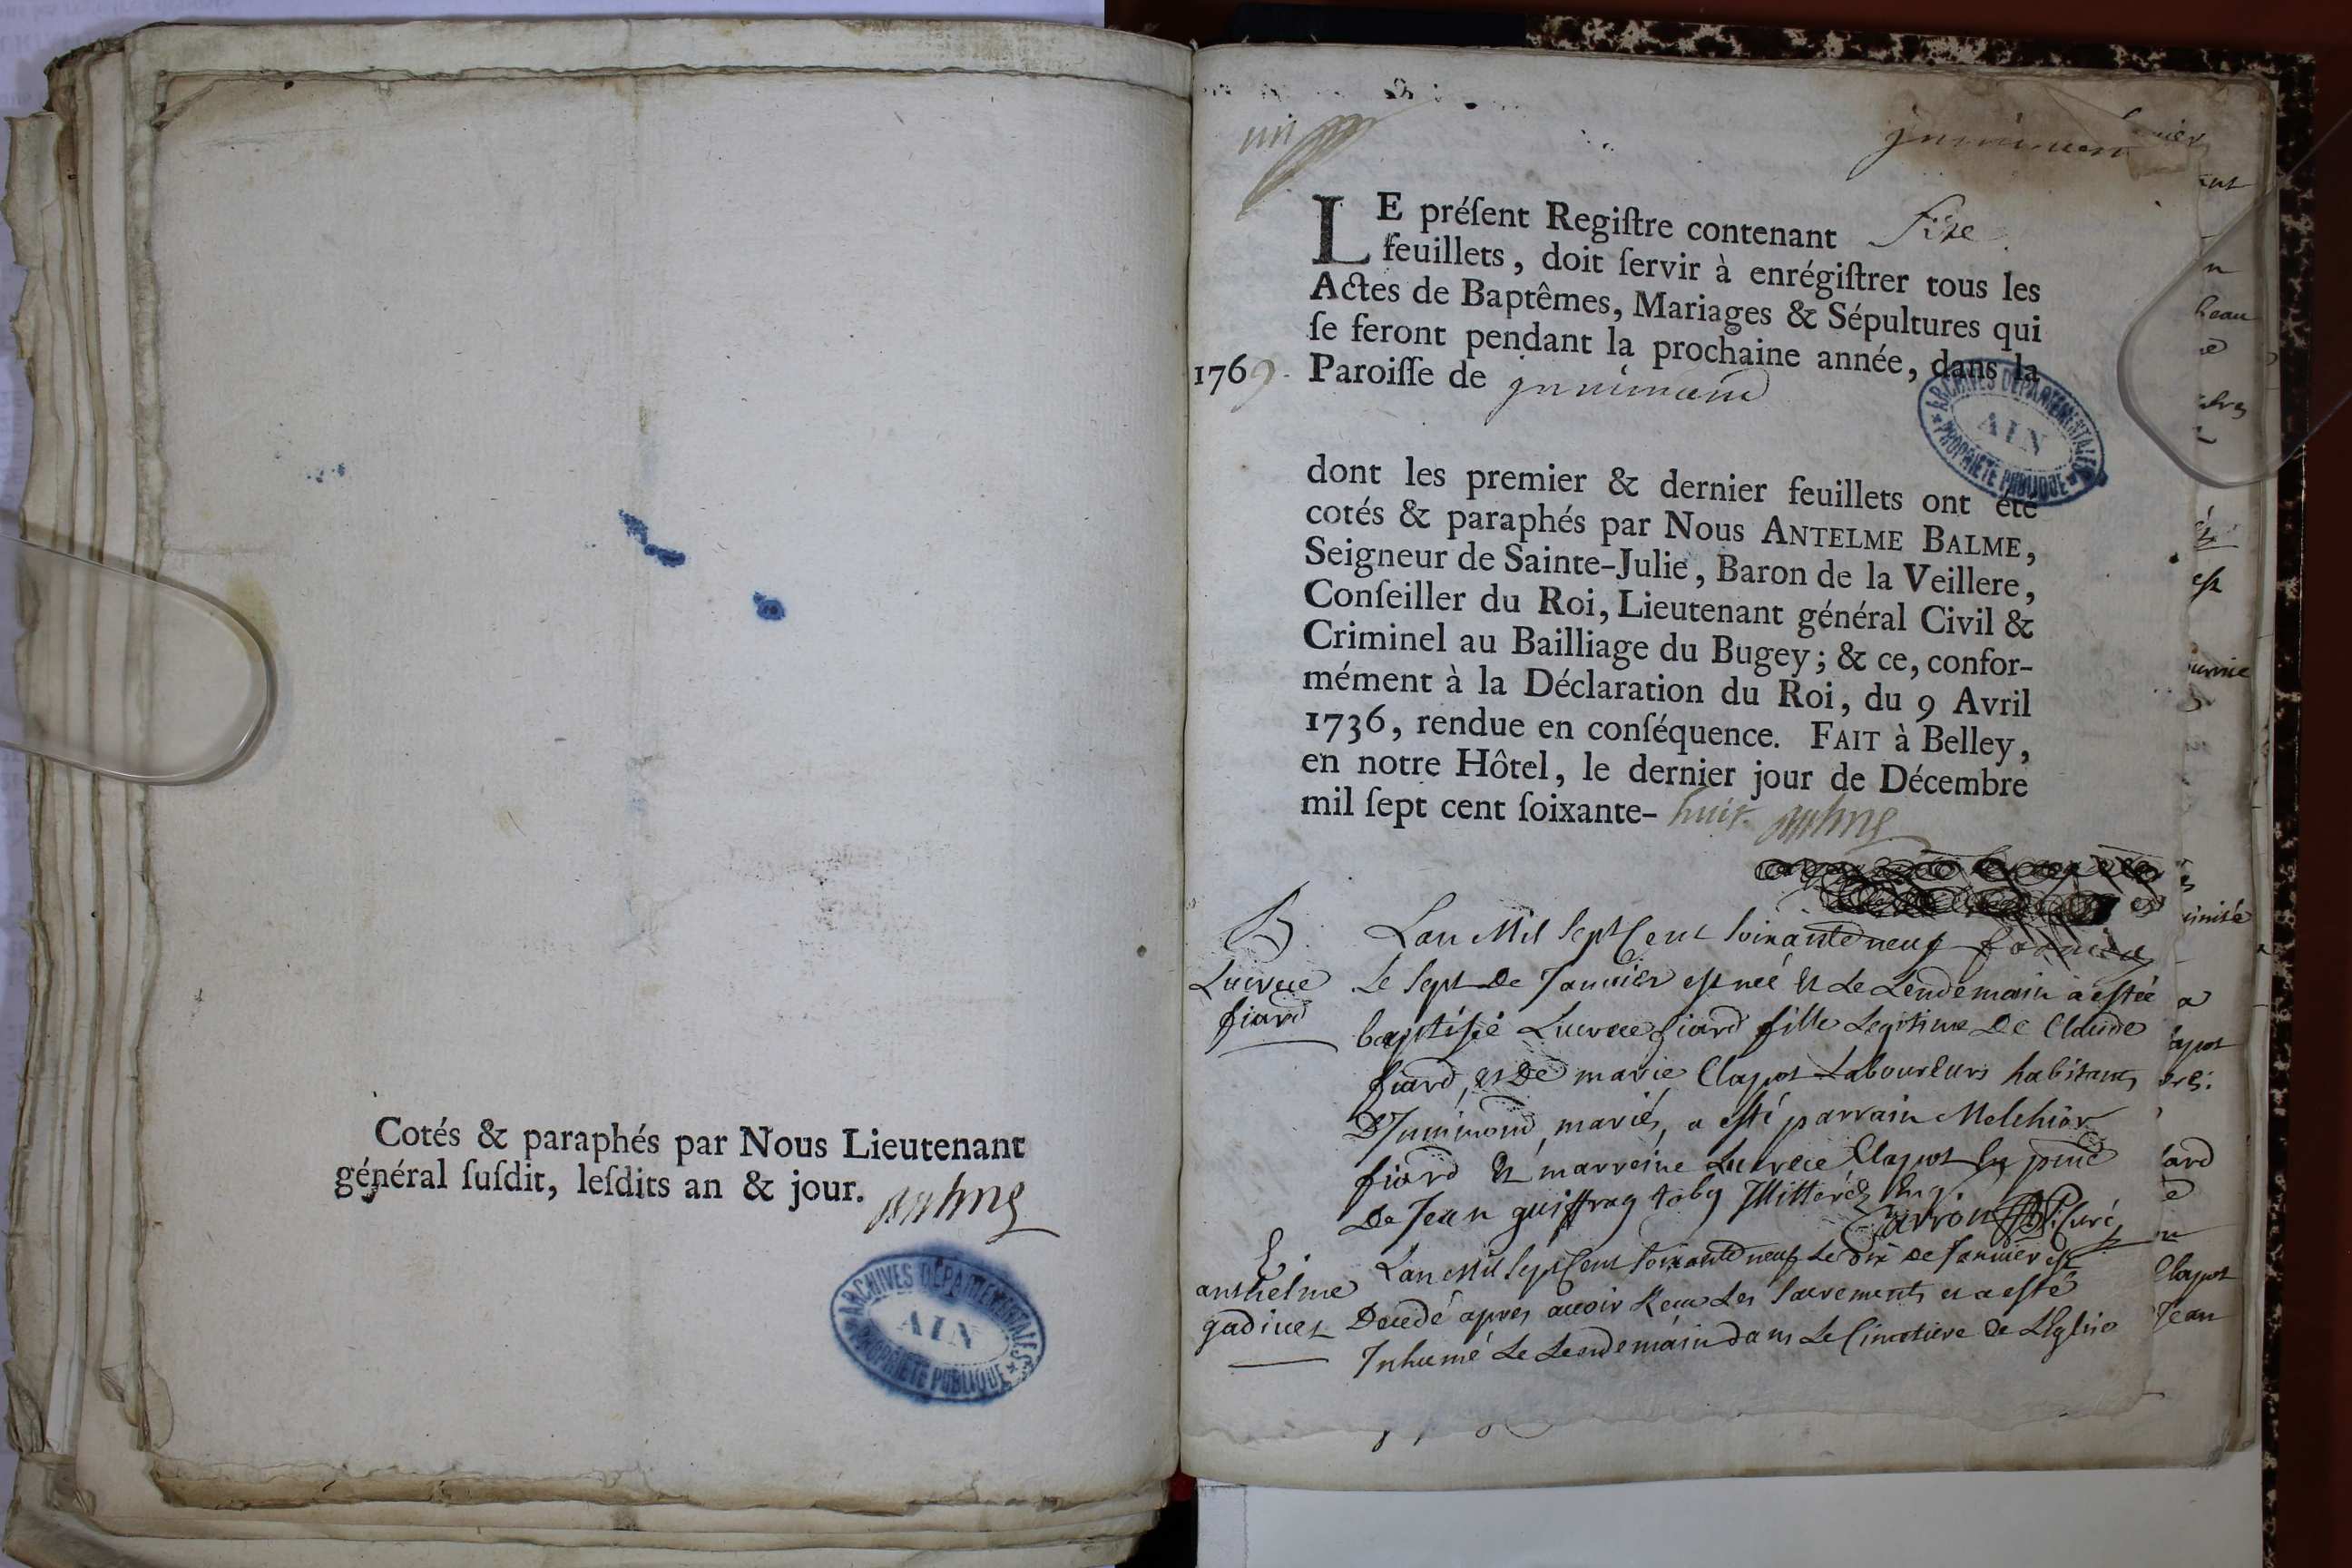 Cotés & paraphés par Nous Lieutenant
général ſuſdit, leſdits an & jour.
ARCHIVES DÉPARTEMENTALES
AIN
PROPRIÉTÉ PUBLIQUE
LE préſent Regiſtre contenant Size
feuillets, doit ſervir à enrégiſtrer tous les
Actes de Baptêmes, Mariages & Sépultures qui
ſe feront pendant la prochaine année, dans la
1769. Paroiſſe de jnnimond
ARCHIVES DÉPARTEMENTALES
AIN
PROPRIÉTÉ PUBLIQUE
dont les premier & dernier feuillets ont été
cotés & paraphés par Nous ANTELME BALME,
Seigneur de Sainte-Julie, Baron de la Veillere,
Conſeiller du Roi, Lieutenant général Civil &
Criminel au Bailliage du Bugey; & ce, confor-
mément à la Déclaration du Roi, du 9 Avril
1736, rendue en conſéquence. FAIT à Belley,
en notre Hôtel, le dernier jour de Décembre
mil ſept cent ſoixante- huit
B
Lucrece
fiard
Lan Mil Sept Cent Soixante neuf
Le Sept De Janvier est neé et Le Lendemain a estée
baptisée Lucrece fiard fille Legitime De Claude
fiard, et De marie Clapot Laboureurs habitants
D'Jnnimond, mariés, a esté parrain Melchior
fiard et marreine Lucrece Clapot
De Jean guiffray Jllitterés
Carron Curé
anthelme
gadinet
Lan Mil Sept Cent Soixante neuf Le Dix De Janvier est
Decedé apres avoir Receu Les Sacrements et a esté
Jnhumé Le Lendemain dans Le Cimetiere de L'Eglise